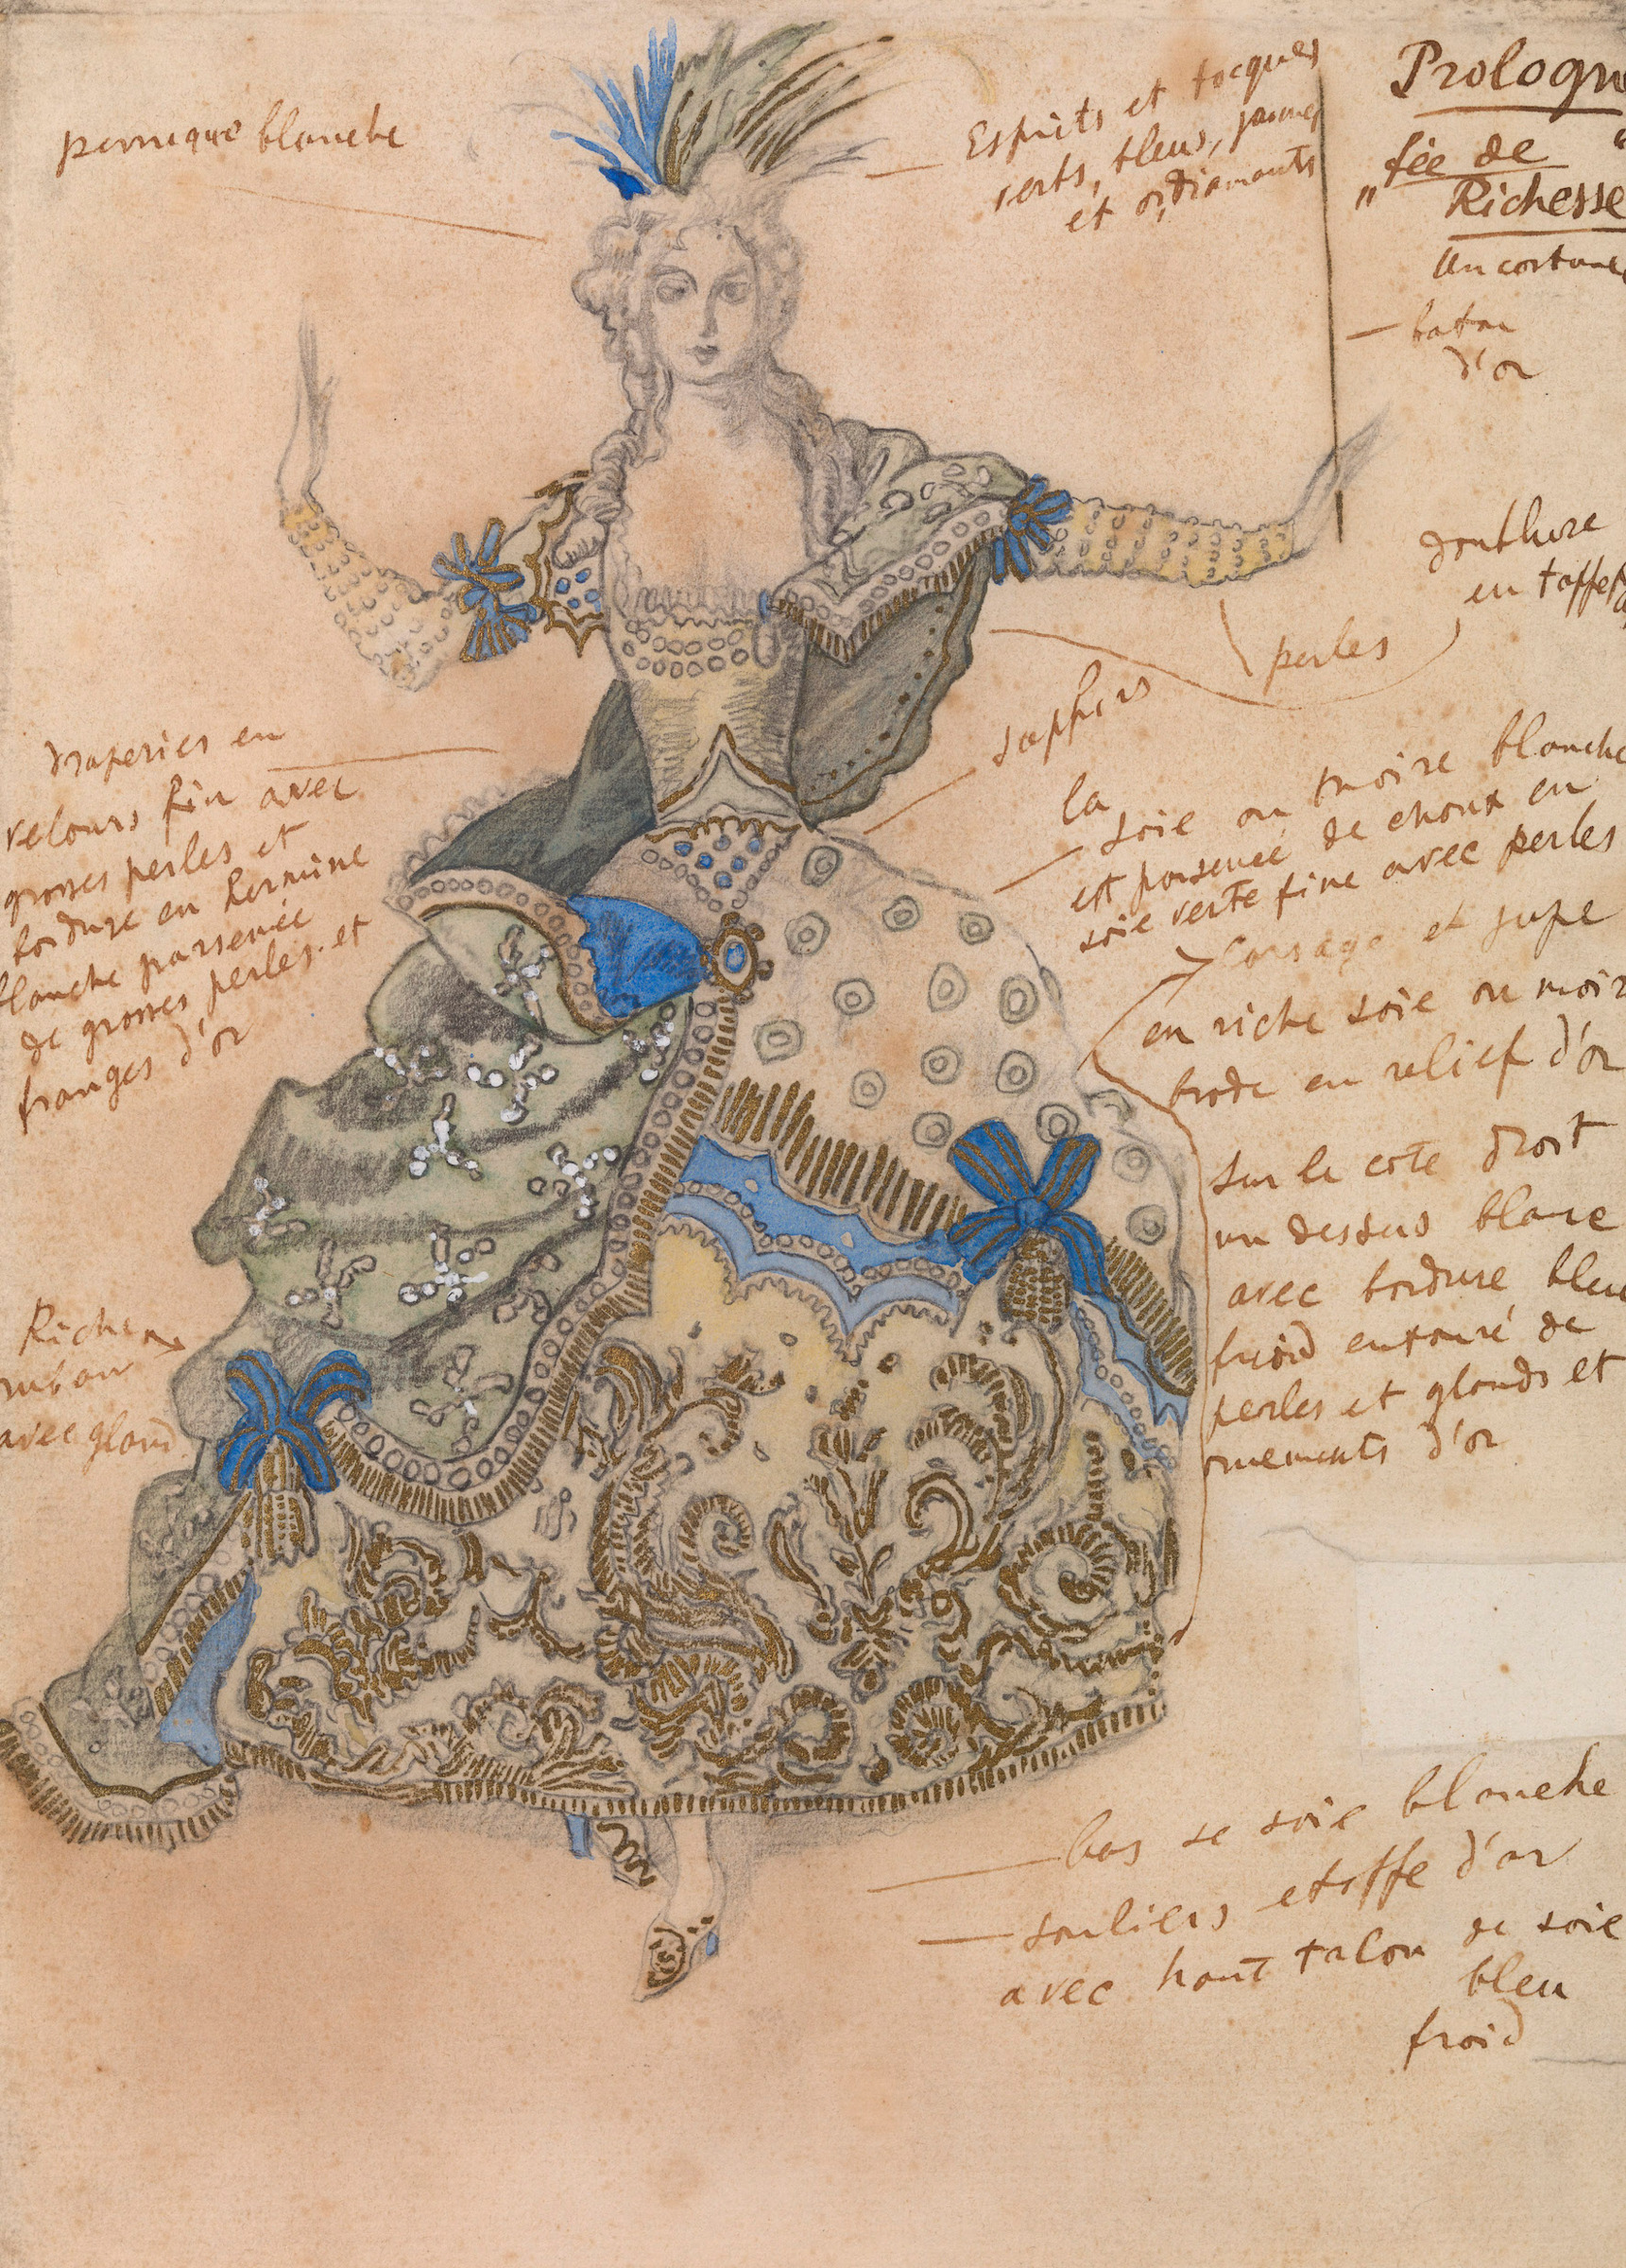 perruque blanche
Esprits et tocques
verts, bleus, jaunes
et or, diamants
Prologu
"fée de "
Richesse
Un costume
baton
d'or
doublure
en taffeta
perles
saphirs
draperies en
velours fin avec
grosses perles et
bordure en hermine
blanche parsemée
de grosses perles et
franges d'or
la
soie ou moire blanche
est parsemée de choux en
soie verte fine avec perles
Corsage et jupe
en riche soie ou moir
brodé en relief d'or
sur le coté droit
un dessus blanc
avec bordure bleu
froid entouré de
perles et glands et
ornements d'or
Riche
ruban
avec gland
bas se soie blanche
souliers etoffe d'or
avec haut talon de soie
bleu
froid